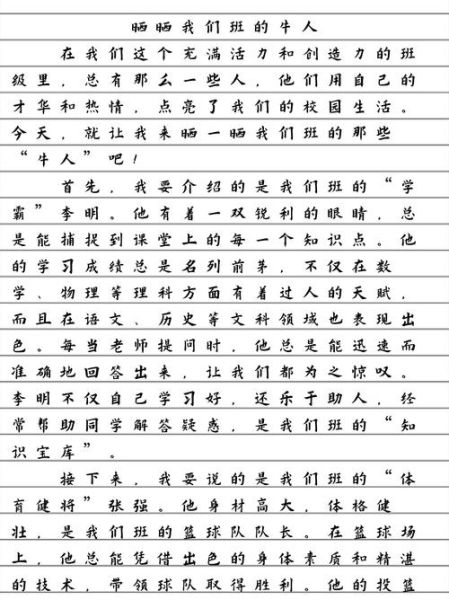 晒晒我们班的牛人
在我们这个充满活力和创造力的班
级里，总有那么一些人，他们用自己的
才华和热情，点亮了我们的校园生活。
今天，就让我来晒一晒我们班的那些
“牛人”吧！
首先，我要介绍的是我们班的“学
霸”李明。他有着一双锐利的眼睛，总
是能捕捉到课堂上的每一个知识点。他
的学习成绩总是名列前茅，不仅在数
学、物理等理科方面有着过人的天赋，
而且在语文、历史等文科领域也表现出
色。每当老师提问时，他总是能迅速而
准确地回答出来，让我们都为之惊叹。
李明不仅自己学习好，还乐于助人，经
常帮助同学解答疑惑，是我们班的“知
识宝库”。
接下来，我要说的是我们班的“体
育健将”张强。他身材高大，体格健
壮，是我们班的篮球队队长。在篮球场
上，他总能凭借出色的身体素质和精湛
的技术，带领球队取得胜利。他的投篮